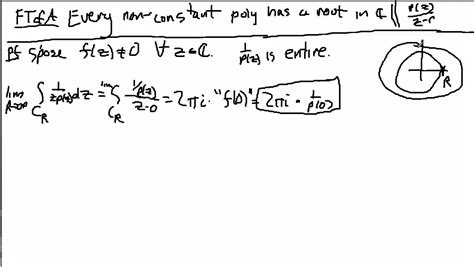 FTofA Every non-constant poly has a root in ℂ
p(z)/(z-r)
Pf Spose f(z)≠0 ∀ z∈ℂ. 1/p(z) is entire.
lim R→∞ ∫_{C_R} 1/(zp(z)) dz = lim ∫_{C_R} (1/p(z))/(z-0) = 2πi · "f(0)" = 2πi · 1/p(0)
R